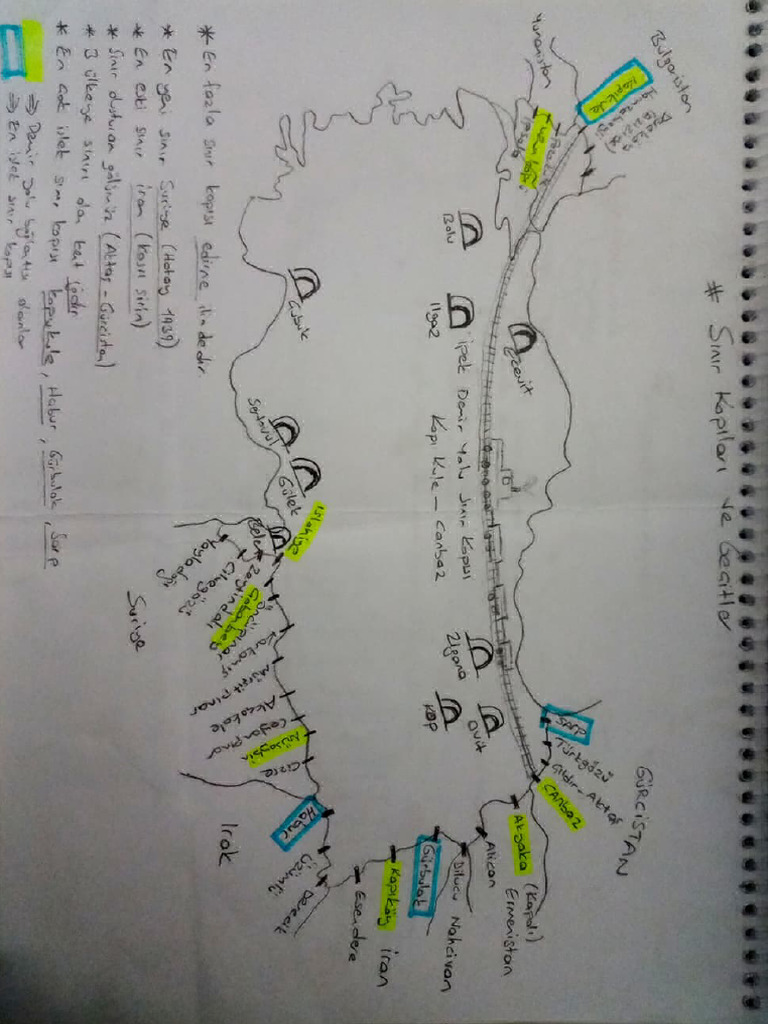 # Sınır Kapıları ve Geçitler
Bulgaristan
Yunanistan
Kapıkule
Hamzabeyli
Dereköy
Pazarkule
İpsala
GÜRCİSTAN
SARP
Türkgözü
Çıldır-Aktaş
CANbaz
Akyaka (Kapalı)
Ermenistan
Alican
Dilucu Nahcivan
Gürbulak
Kapıköy İran
Esendere
Derecik
Üzümlü
Habur
Irak
Cizre
Nusaybin
Ceylanpınar
Akçakale
Mürşitpınar
Karkamış
Çobanbey
Zeytindalı
Cilvegözü
Yayladağı
Suriye
İslahiye
Belen
Gülek
Sertavul
Çubuk
Bolu
Ilgaz
Ecevit
Zigana
Kop
Ovit
İpek Demir Yolu Sınır Kapısı
Kapı Kule – Canbaz
* En fazla sınır kapısı edirne ilindedir.
* En yeni sınır Suriye (Hatay 1939)
* En eski sınır iran (Kasrı şirin)
* Sınır oluşturan gölümüz (Aktaş – Gürcistan)
* 3 ülkeye sınırı olan kent Iğdır
* En çok işlek sınır kapısı kapıkule, Habur, Gürbulak, Sarp
⇒ Demir yolu bağlantısı olanlar
⇒ En işlek sınır kapısı